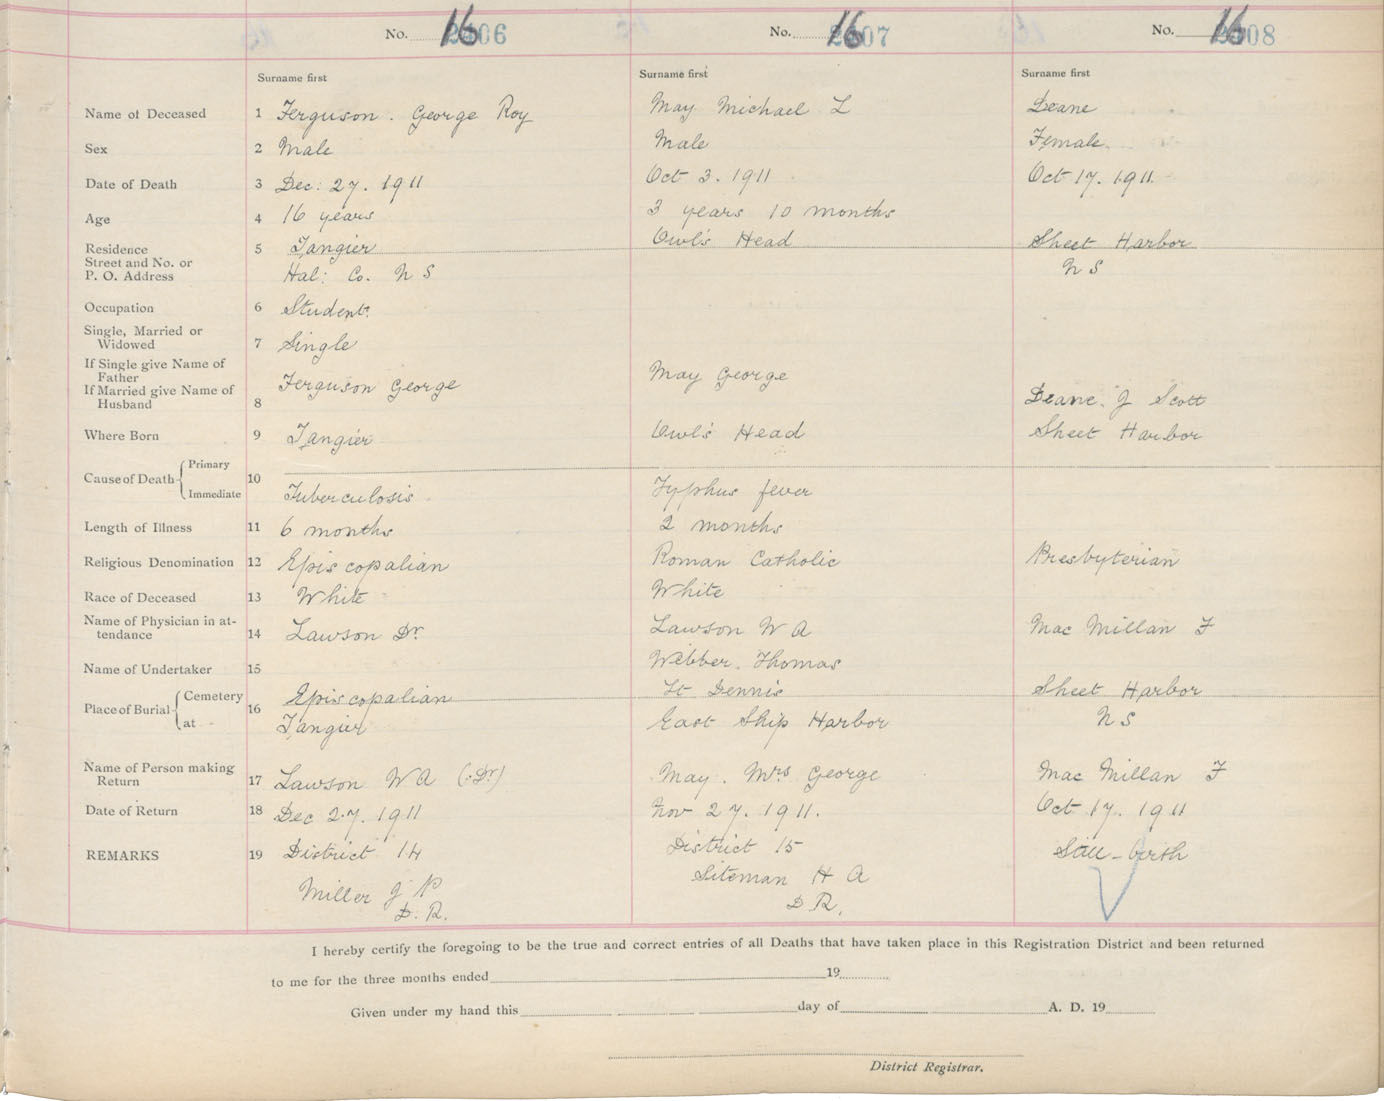 No. 16 06 No. 16 07 No. 16 08
Surname first Surname first Surname first
Name of Deceased 1 Ferguson. George Roy May Michael L Deane
Sex 2 Male Male Female
Date of Death 3 Dec: 27. 1911 Oct 3. 1911 Oct 17. 1911
Age 4 16 years 3 years 10 months
Residence 5 Tangier Owl's Head Sheet Harbor
Street and No. or
P. O. Address Hal: Co. N S N S
Occupation 6 Student.
Single, Married or
Widowed 7 Single
If Single give Name of
Father Ferguson George May George
If Married give Name of
Husband 8 Deane. J Scott
Where Born 9 Tangier Owl's Head Sheet Harbor
Cause of Death Primary 10
Immediate Tuberculosis Typhus fever
Length of Illness 11 6 months 2 months
Religious Denomination 12 Episcopalian Roman Catholic Presbyterian
Race of Deceased 13 White White
Name of Physician in at-
tendance 14 Lawson Dr. Lawson W A Mac Millan F
Name of Undertaker 15 Webber. Thomas
Place of Burial Cemetery 16 Episcopalian St Dennis Sheet Harbor
at Tangier East Ship Harbor N S
Name of Person making
Return 17 Lawson W A (Dr) May. Mrs George Mac Millan F
Date of Return 18 Dec 27. 1911 Nov 27. 1911. Oct 17. 1911
REMARKS 19 District 14 District 15 Still-birth
Miller J P Siteman H A
D. R. D R.
I hereby certify the foregoing to be the true and correct entries of all Deaths that have taken place in this Registration District and been returned
to me for the three months ended 19
Given under my hand this day of A. D. 19
District Registrar.